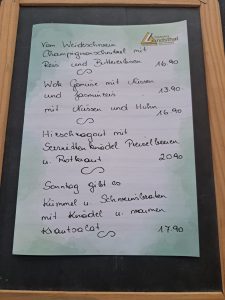 Vom Weideschwein
Champignonschnitzel mit
Reis und Buttererbsen 16.90
Wok Gemüse mit Nüssen
und Jasminreis 13.90
mit Nüssen und Huhn 16.90
Hirschragout mit
Serviettenknödel Preiselbeeren
u. Rotkraut 20.90
Sonntag gibt es
Kümmel u. Schweinsbraten
mit Knödel u. warmen
Krautsalat 17.90